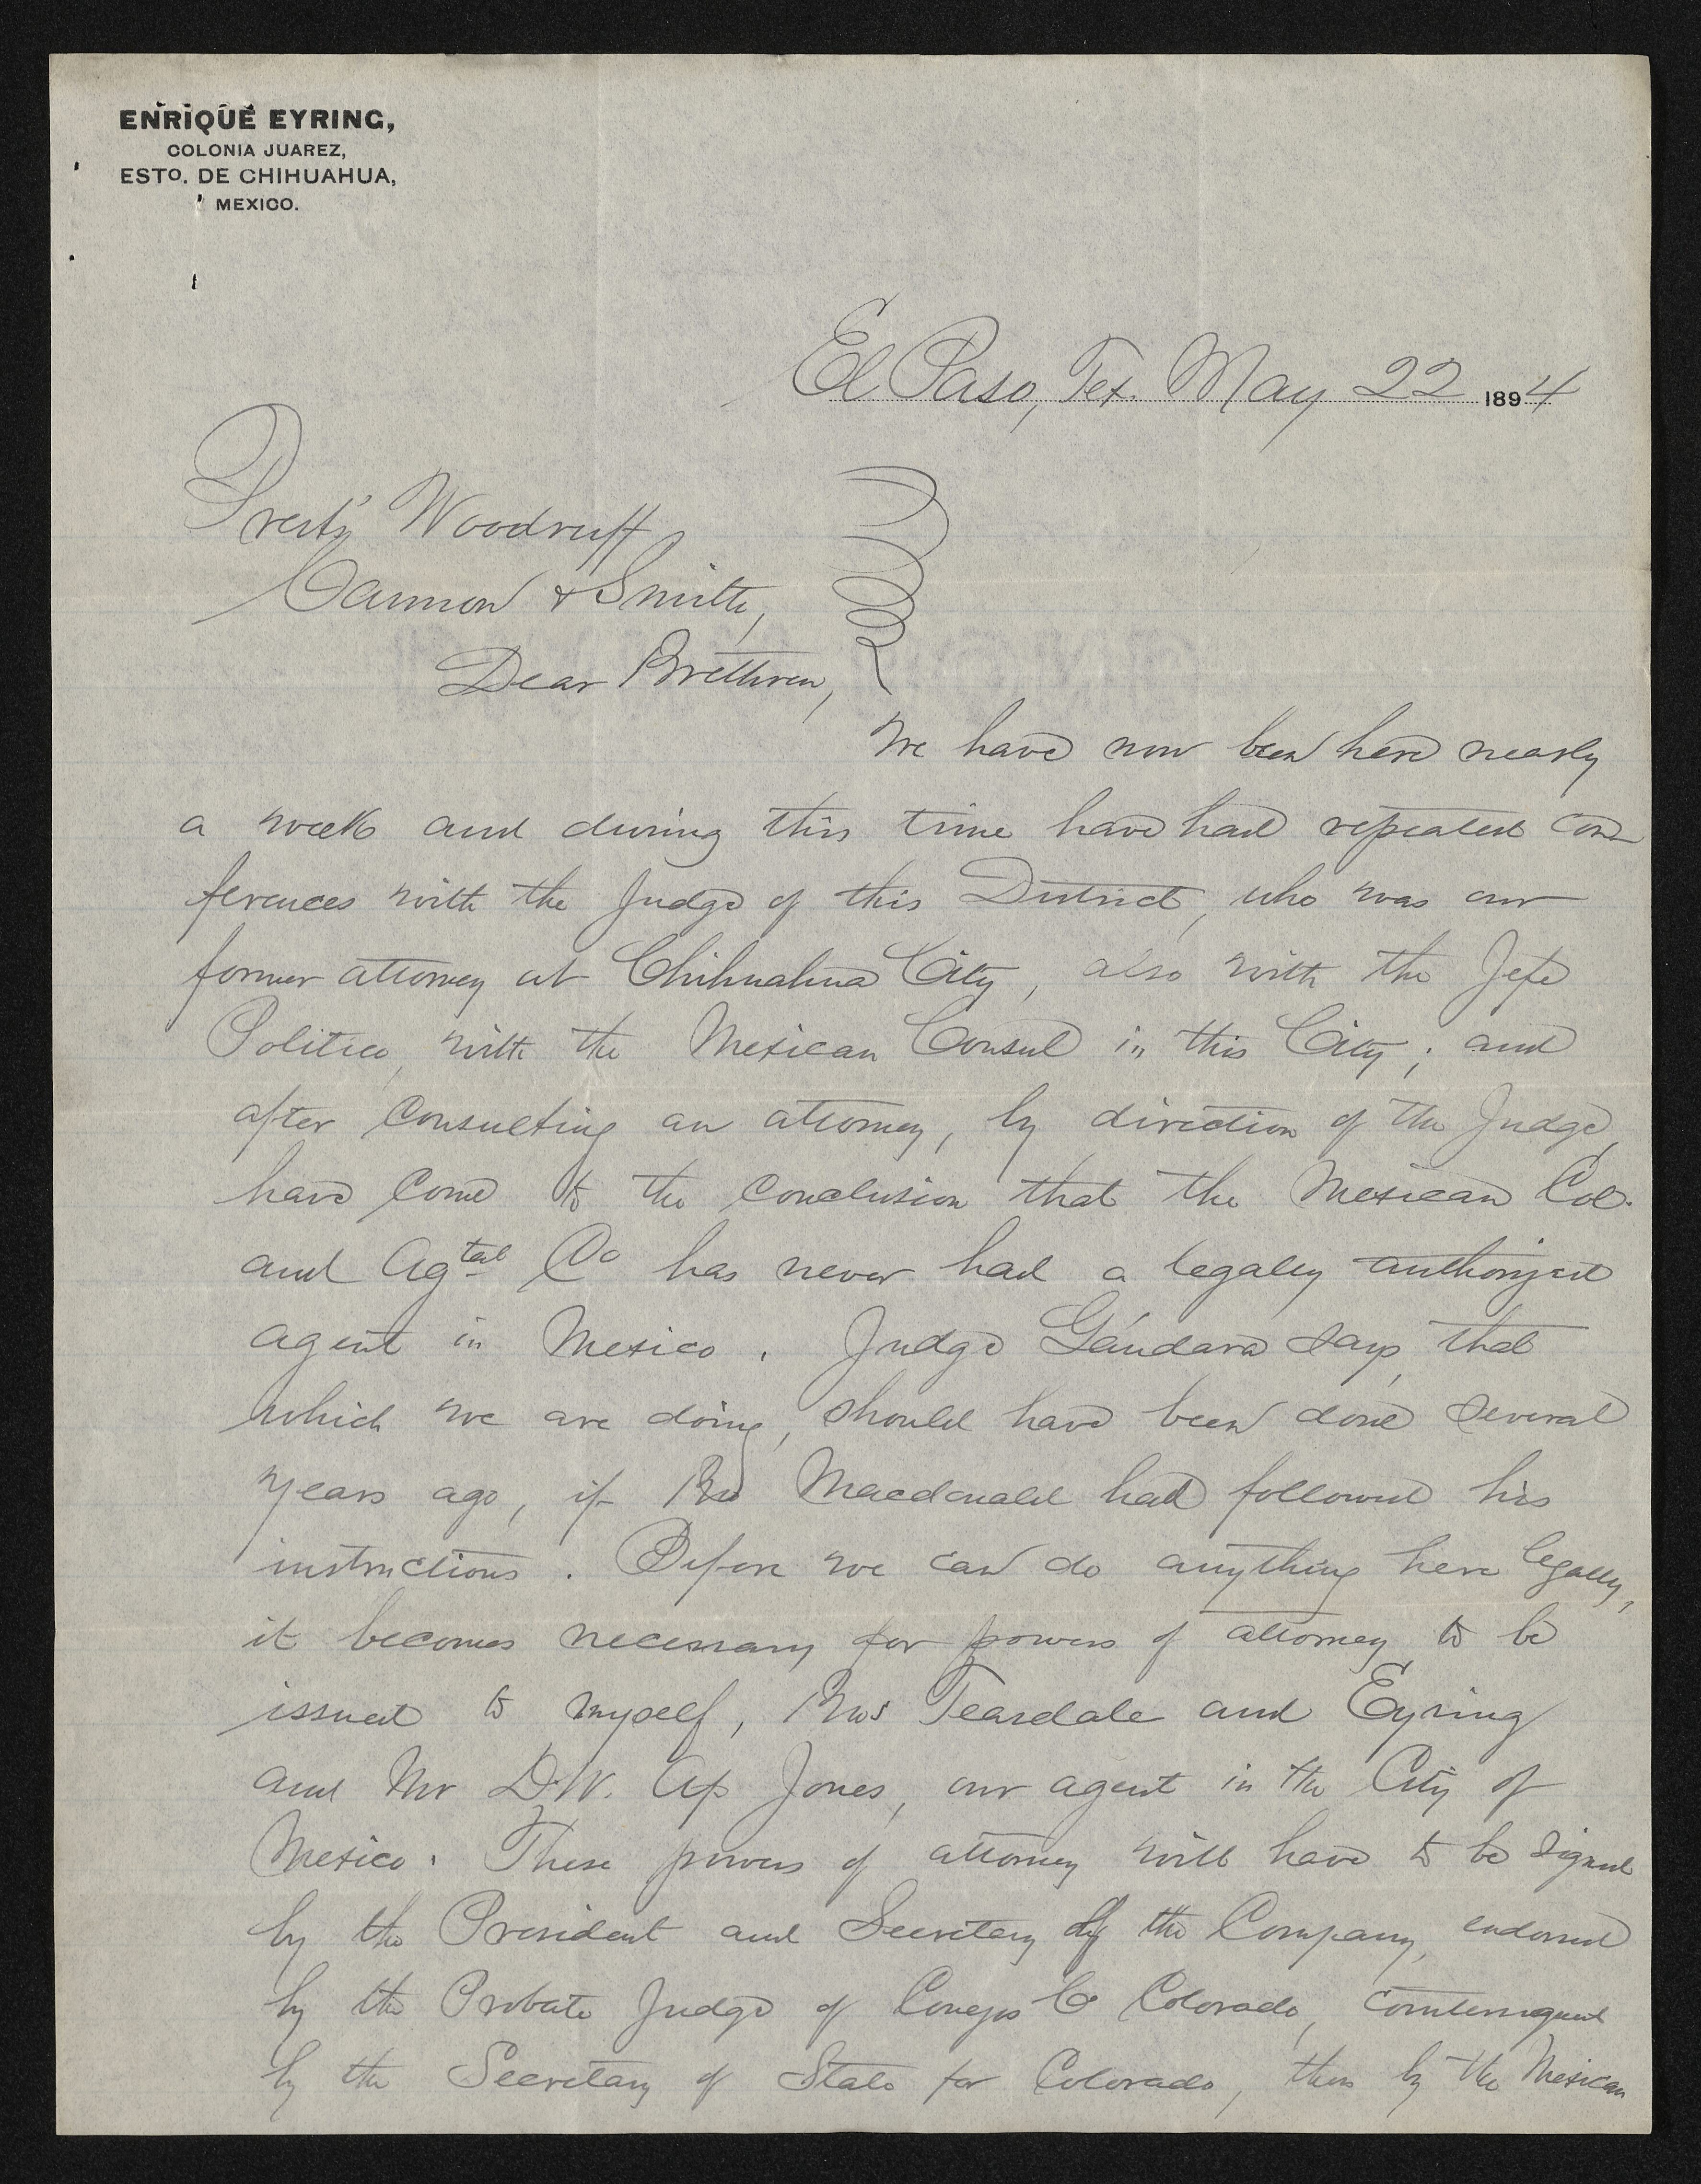 ENRIQUE EYRING,
COLONIA JUAREZ,
ESTO. DE CHIHUAHUA,
MEXICO.
El Paso, Tex. May 22 1894
Prests Woodruff
Cannon & Smith,
Dear Brethren,
We have now been here nearly
a week and during this time have had repeated con
ferences with the Judge of this District, who was our
former attorney at Chihuahua City, also with the Jefe
Politico, with the Mexican Consul in this City; and
after consulting an attorney, by direction of the Judge,
have come to the conclusion that the Mexican Col.
and Agtal Co has never had a legally authorized
agent in Mexico. Judge Gándara says, that
which we are doing, should have been done several
years ago, if Bro Macdonald had followed his
instructions. Before we can do anything here legally,
it becomes necessary for powers of attorney to be
issued to myself, Bros Teasdale and Eyring
and Mr D.W. Ap Jones, our agent in the City of
Mexico. These powers of attorney will have to be signed
by the President and Secretary of the Company, endorsed
by the Probate Judge of Conejos Co Colorado, countersigned
by the Secretary of State for Colorado, then by the Mexican